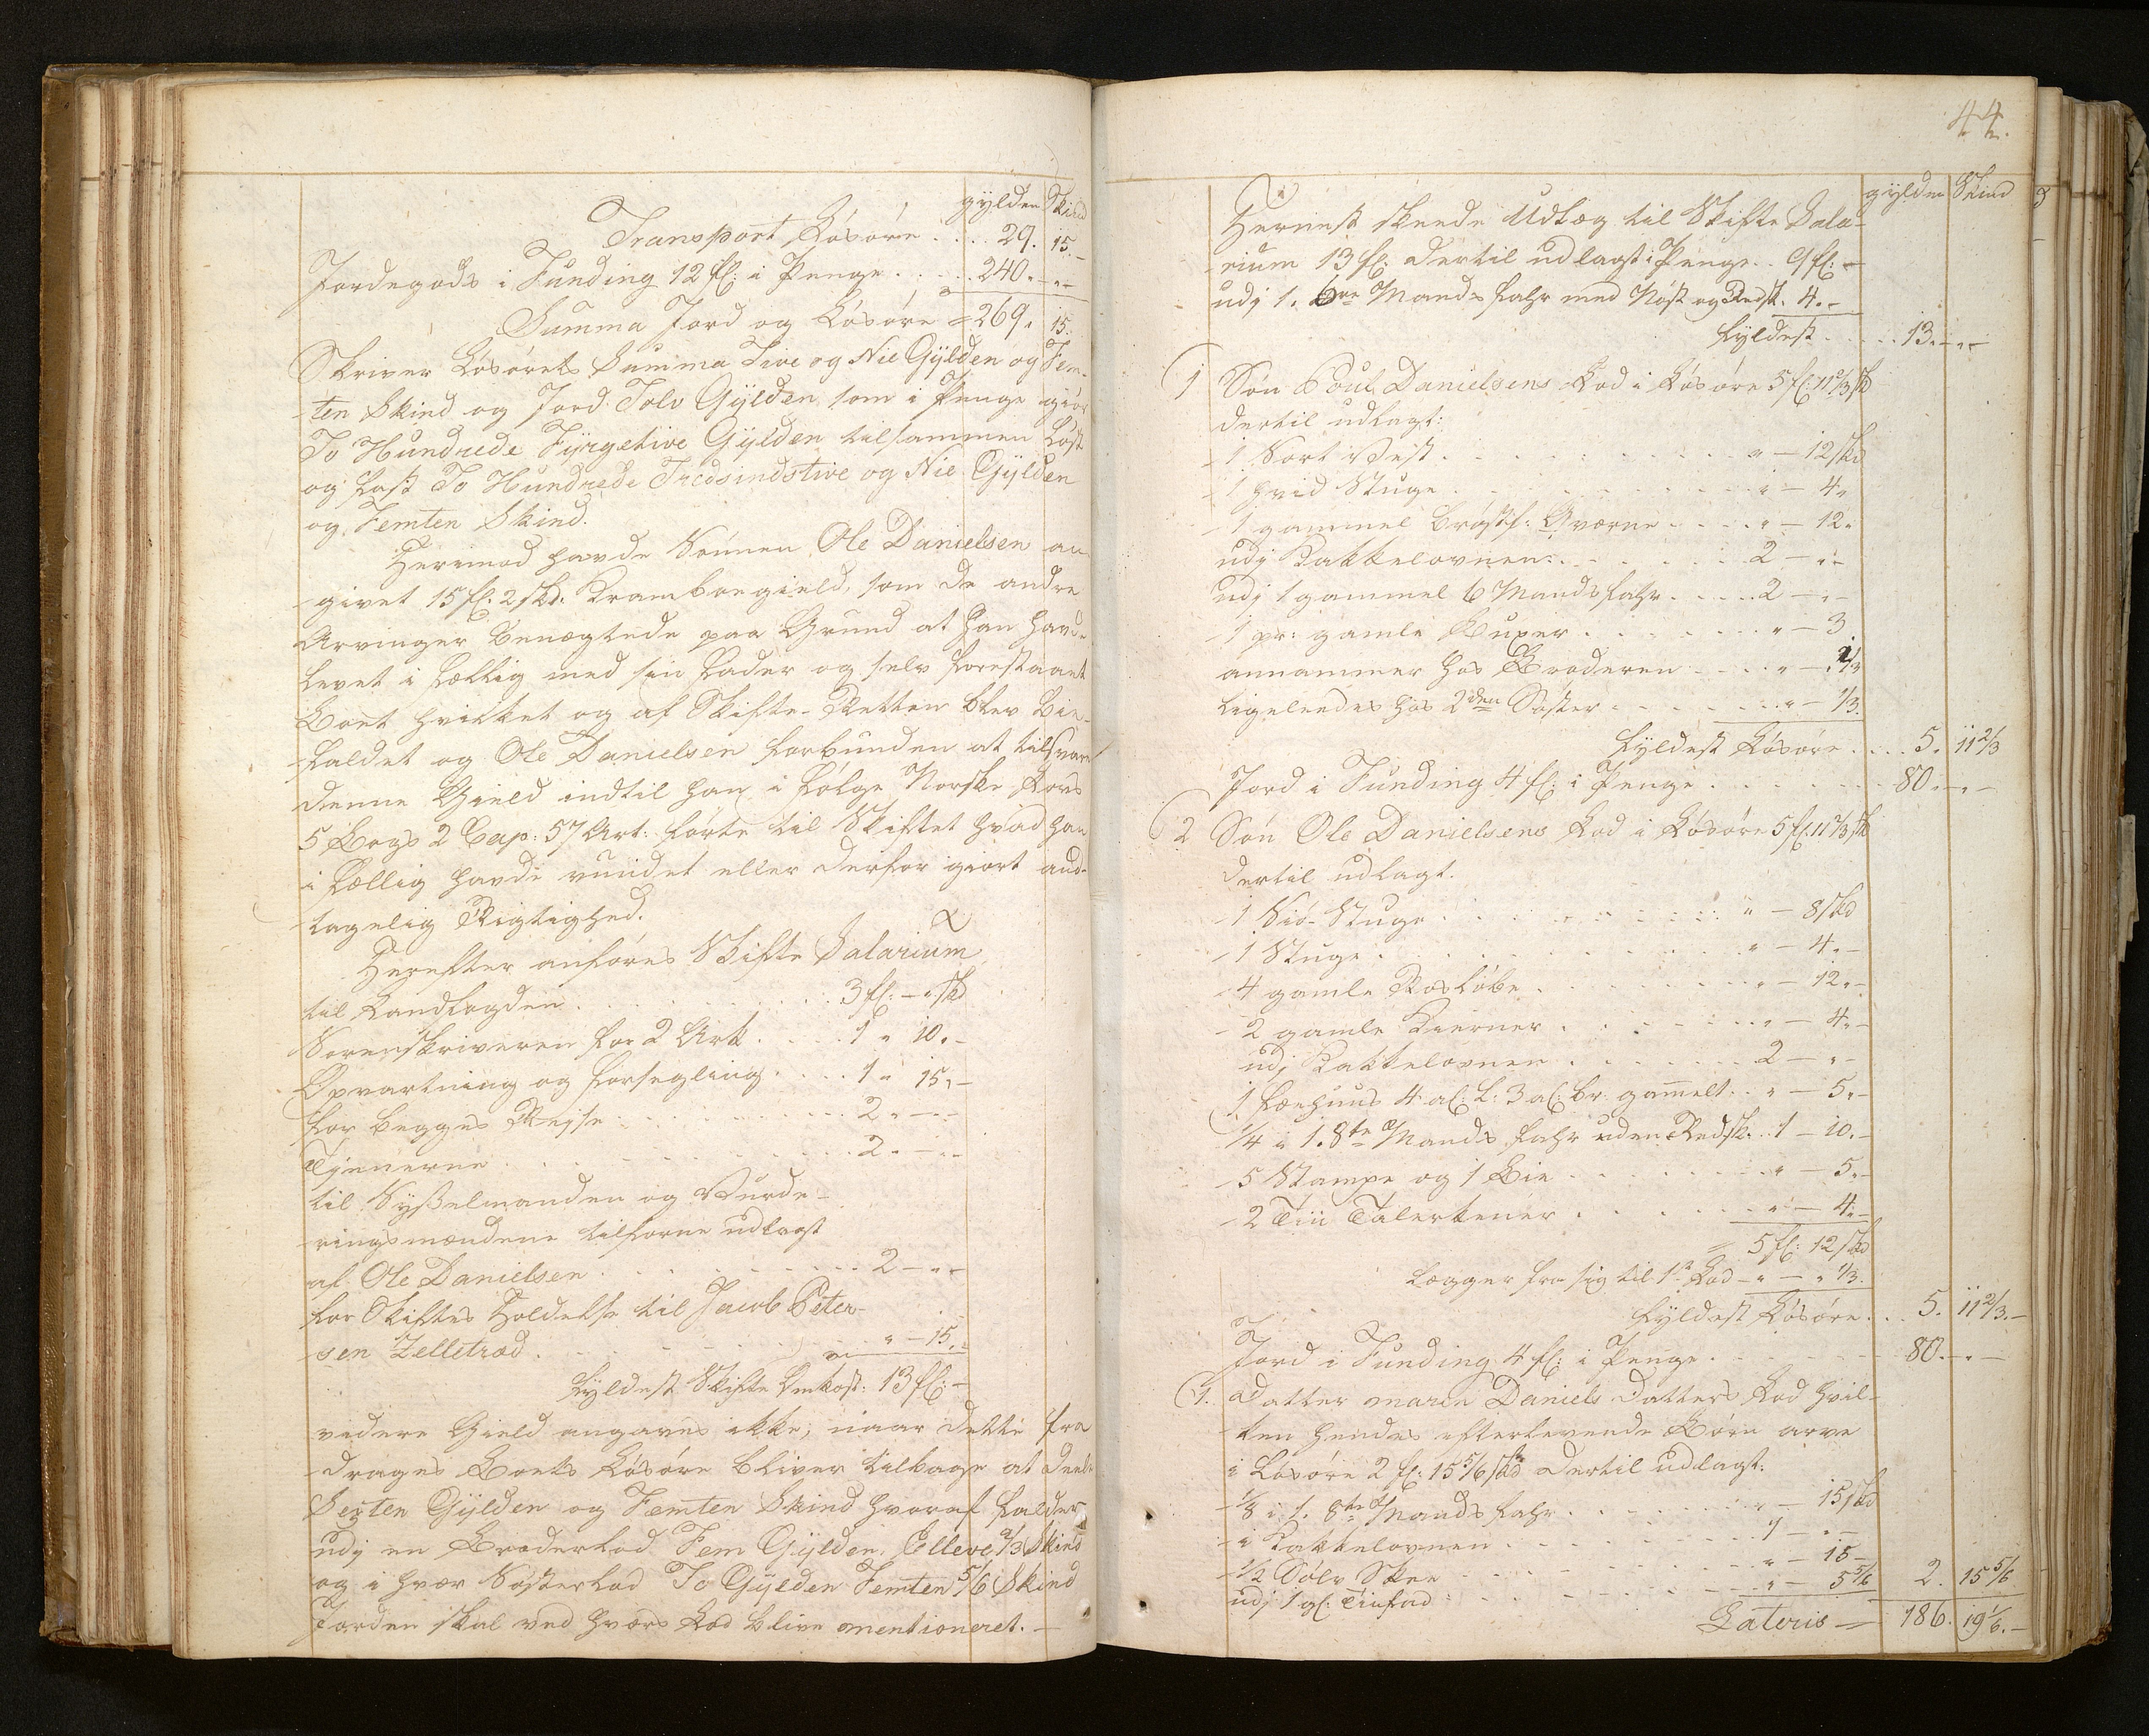 gylden Skind
Transport Løsøre .... 29. 15.-
Jordegods i Funding 12 fl: i Penge .... 240.-.-
Summa Jord og Løsøre = 269. 15.
Skriver Løsørets Summa Tive og Nie Gylden og Fem-
ten Skind og Jord Tolv Gylden som i Penge giør
To Hundrede Fyrgetive Gylden tilsammen Løst
og fast To Hundrede Tredsindstive og Nie Gylden
og Femten Skind.
Herimod havde Sønnen Ole Danielsen an-
givet 15 fl: 2 skd. Kramboegield, som de andre
Arvinger benægtede paa Grund at han havde
levet i Fællig med sin Fader og selv forestaaet
Boet hvilket og af Skifte-Retten blev bie-
faldet og Ole Danielsen forbunden at tilsvare
denne Gield indtil han i følge Norske Lovs
5 Bogs 2 Cap: 57 Art: førte til Skiftet hvad han
i Fællig havde vundet eller derfor giort and-
tagelig Rigtighed.
Herefter anføres Skifte Salarium
til Landfogden .... 3 fl: -. skd
Sorenskriveren for 2 Ark .... 1 " 10.-
Opvartning og Forsegling .... 1 " 15.-
for begges Rejse .... 2.-.-
Tjenerne .... 2.-.-
til Sysselmanden og Vurde-
ringsmændene tilforne udlagt
af Ole Danielsen .... 2-.-
for Skiftes Holdelse til Jacob Peter-
sen Zelletræd .... " - 15.-
Fyldest Skifte Omkost: 13 fl: -
videre Gield angaves ikke; naar dette fra
drages Boets Løsøre bliver tilbage at deele
Sexten Gylden og Femten Skind hvoraf falder
udj en Broderlod Fem Gylden Elleve 2/3 Skind
og i hver Søsterlod To Gylden Femten 5/6 Skind
Jorden skal ved hvers Lod blive mentioneret.-
44.
gylden Skind
Hernest skeede Udlæg til Skifte Sala-
rium 13 fl. dertil udlagt i Penge .. 9 fl: -
udj 1. 6te Mands Fahr med Nøst og Redsk. 4.-
Fyldest .... 13.-.-
1 Søn Poul Danielsens Lod i Løsøre 5 fl: 11 2/3 skd
dertil udlagt:
1 Sort Vest .... " - 12 skd
1 hvid Stuge .... " - 4.
1 gammel brøstf: Qværne .... " - 12.
udj Kakkelovnen .... 2 - .-
udj 1 gammel 6 Mands Fahr .... 2 - .-
1 pr: gamle Buxer .... " - 3
annammer hos Broderen .... " - 1/3
ligeleedes hos 2den Søster .... " - 1/3.
Fyldest Løsøre .... 5. 11 2/3
Jord i Funding 4 fl: i Penge .... 80.-.-
2 Søn Ole Danielsens Lod i Løsøre 5 fl: 11 2/3 skd
dertil udlagt.
1 Siö-Stuge .... " - 8 skd
1 Stuge .... " - 4.-
4 gamle .... " - 12.-
2 gamle Kierner .... " - 4.-
udj Kakkelovnen .... 2 - .-
1 Faehuus 4 al: L: 3 al: br: gamelt .. " - 5.-
1/4 i 1. 8te Mands Fahr uden Redsk. .. 1 - 10.-
5 Stampe og 1 Bie .... " - 5.-
2 Tin Talerkener .... " - 4.-
= 5 fl: 12 skd
Lægger fra sig til 1te Lod - " - " 1/3.
Fyldest Løsøre .... 5. 11 2/3.-
Jord i Funding 4 fl: i Penge .... 80.-.-
1. Datter Maren Daniels Datters Lod hvil-
ken hendes efterlevende Børn arve
i Løsøre 2 fl: 15 5/6 skd dertil udlagt:
1/8 i 1. 8te Mands Fahr .... " - 15 skd
i Kakkelovnen .... 1 - .-
1/2 Sølv Skee .... " - 15 -
udj 1 gl: Tinfad .... " - 5 5/6 2. 15 5/6
Lateris = 186. 19 1/6.-